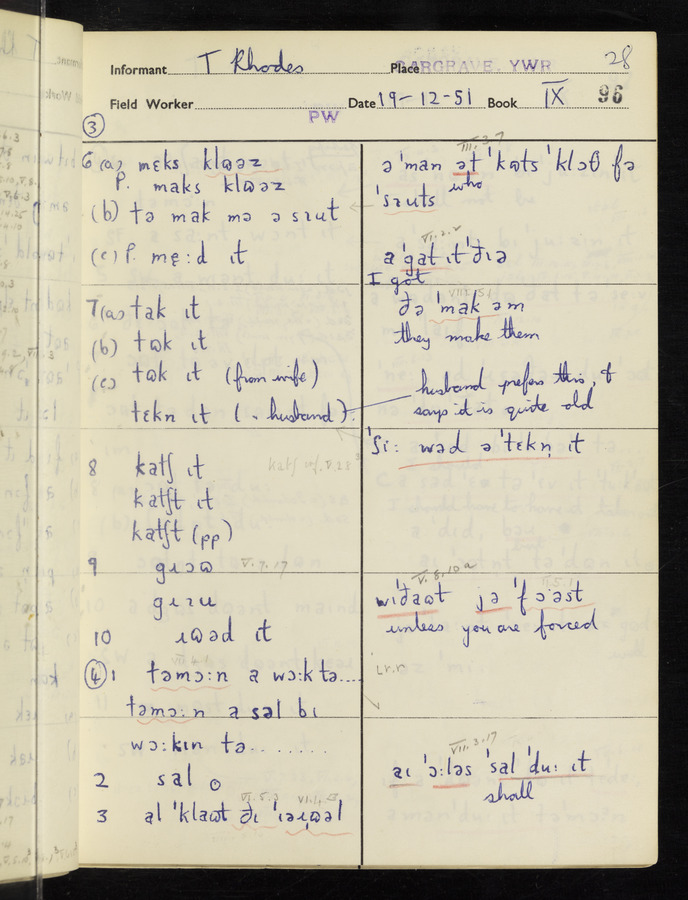 28
Informant T Rhodes Place GARGRAVE, YWR
Field Worker PW Date 19-12-51 Book IX 96
③
6 (a) mɛks klɷəz
P. maks klɷəz
(b) tə mak mə ə sɪut
(c) P. mɛ̣:d ɪt
7(a) tak ɪt
(b) tɷk ɪt
(c) tɷk ɪt (from wife)
tɛkn ɪt (.. husband).
8 katʃ ɪt
katʃt ɪt
katʃt (pp)
9 gɹɔɷ V.7.17
gɹɪu
10 ɹɷəd ɪt
④ 1 təmɔ:n a wɔ:k tə....
təmɔ:n a səl bɪ
wɔ:kɪn tə........
2 sal
VI.5.3
3 al 'klaɷt ðɪ 'ɪəɹɷəl
VIII.3.7
ə 'man ət 'kɷts 'klɔθ fə
'sɪuts who
VI.2.2
a 'gat ɪt 'ðɪə
I got
ðə 'mak əm
they make them
husband prefers this, &
says it is quite old
'ʃi: wəd ə 'tɛkn̩ ɪt
V.8.10a
wɪðaɷt jə 'fɔəst
unless you are forced
VII.3.17
aɪ 'ɔ:ləs 'sal 'du: ɪt
shall